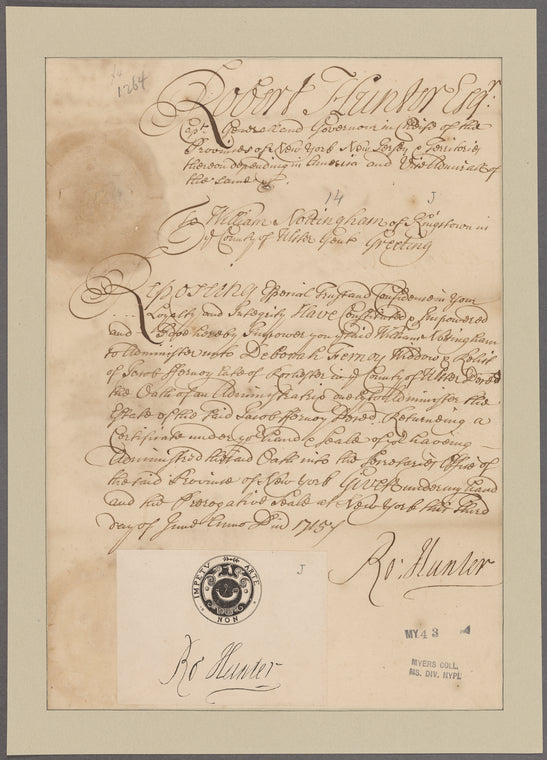 1264
Robert Hunter Esqr.
Capt. Generall and Governour in Cheife of the
Provinces of New York New Jersey & Territories
thereon depending in America and Vice Admirall of
the same &c.
14 J
To William Nottingham of Kingstown in
ye County of Ulster Gent Greeting
Reposing Especial Trust and Confidence in Your
Loyalty and Integrity Have Constituted & Impowered
and I Doe hereby Impower you ye said William Nottingham
to Administer unto Deborah Fernoy Widdow & Relict
of Jacob Fernoy late of Rochester in ye County of Ulster Deced
the Oath of an Administratrix well to Administer the
Estate of the said Jacob Fernoy Decd. Returning a
Certificate under yor hand & seale of yor having
Administred the said Oath into the Secretaries Office of
the said Province of New York Given under my hand
and the Prerogative Seale at New York this Third
day of June Anno Dm 1715
Ro: Hunter
J
IMPETV ARTE NON
Ro Hunter
MY. 43
MYERS COLL.
MS. DIV. NYPL